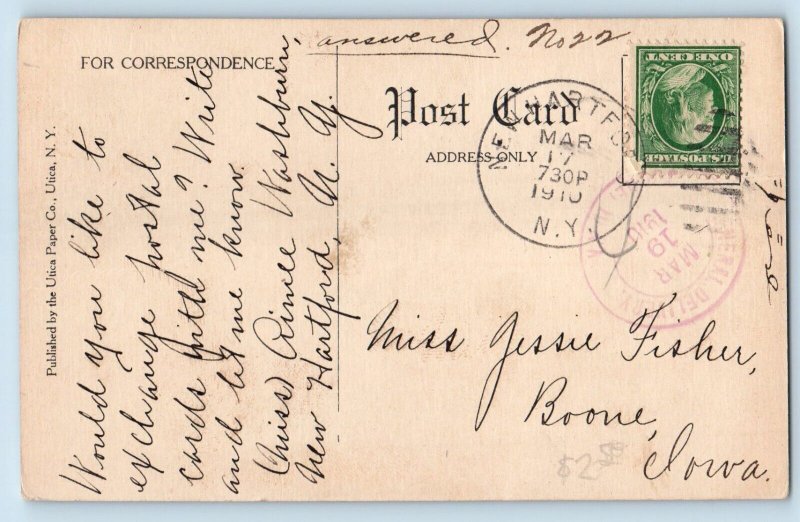 answered. No 22
FOR CORRESPONDENCE
Post Card
ADDRESS ONLY
Published by the Utica Paper Co., Utica, N. Y.
Would you like to
exchange postal
cards with me? Write
and let me know.
Miss Aimee Washburn,
New Hartford, N. Y.
NEW HARTFO
MAR
17
730P
1910
N.Y.
U.S. POSTAGE
ONE CENT
MAR
19
1910
Miss Jessie Fisher,
Boone,
Iowa.